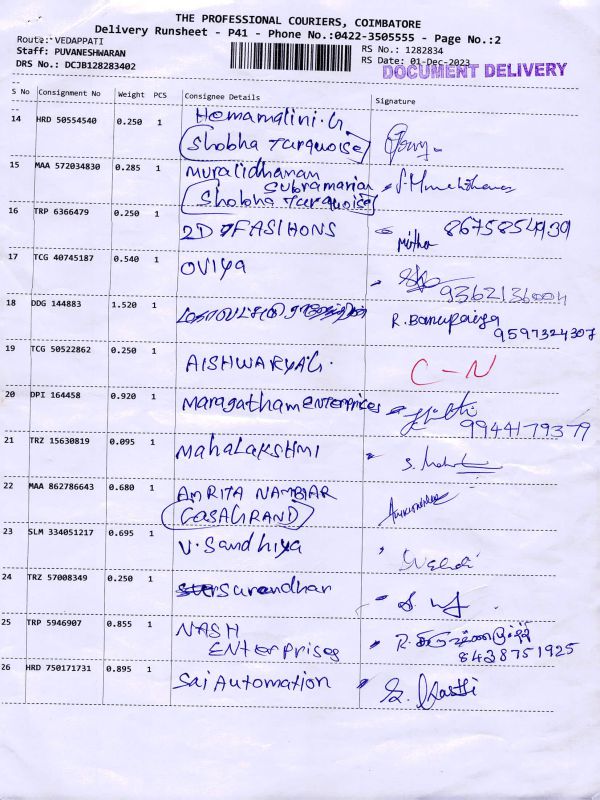 THE PROFESSIONAL COURIERS, COIMBATORE
Delivery Runsheet - P41 - Phone No.:0422-3505555 - Page No.:2
Route: VEDAPPATI
Staff: PUVANESHWARAN
DRS No.: DCJB128283402
RS No.: 1282834
RS Date: 01-Dec-2023
DOCUMENT DELIVERY
S No Consignment No Weight PCS Consignee Details Signature
14 HRD 50554540 0.250 1 Hemamalini.G
Shobha Turquoise
15 MAA 572034830 0.285 1 Muralidharan
Subramanian
Shobha Turquoise
16 TRP 6366479 0.250 1 2D 7 FASIHONS 8675854939
17 TCG 40745187 0.540 1 OVIYA
18 DDG 144883 1.520 1 R. Banupriya
9597324307
19 TCG 50522862 0.250 1 AISHWARYA G. C-N
20 DPI 164458 0.920 1 Maragatham ENTERPRICES
9944179379
21 TRZ 15630819 0.095 1 MAHALAKSHMI
22 MAA 862786643 0.680 1 AMRITA NAMBIAR
CASAGRAND
23 SLM 334051217 0.695 1 V. Sandhiya
24 TRZ 57008349 0.250 1 Surendhar
25 TRP 5946907 0.855 1 NASH
ENterprises
8438751925
26 HRD 750171731 0.895 1 Sai Automation